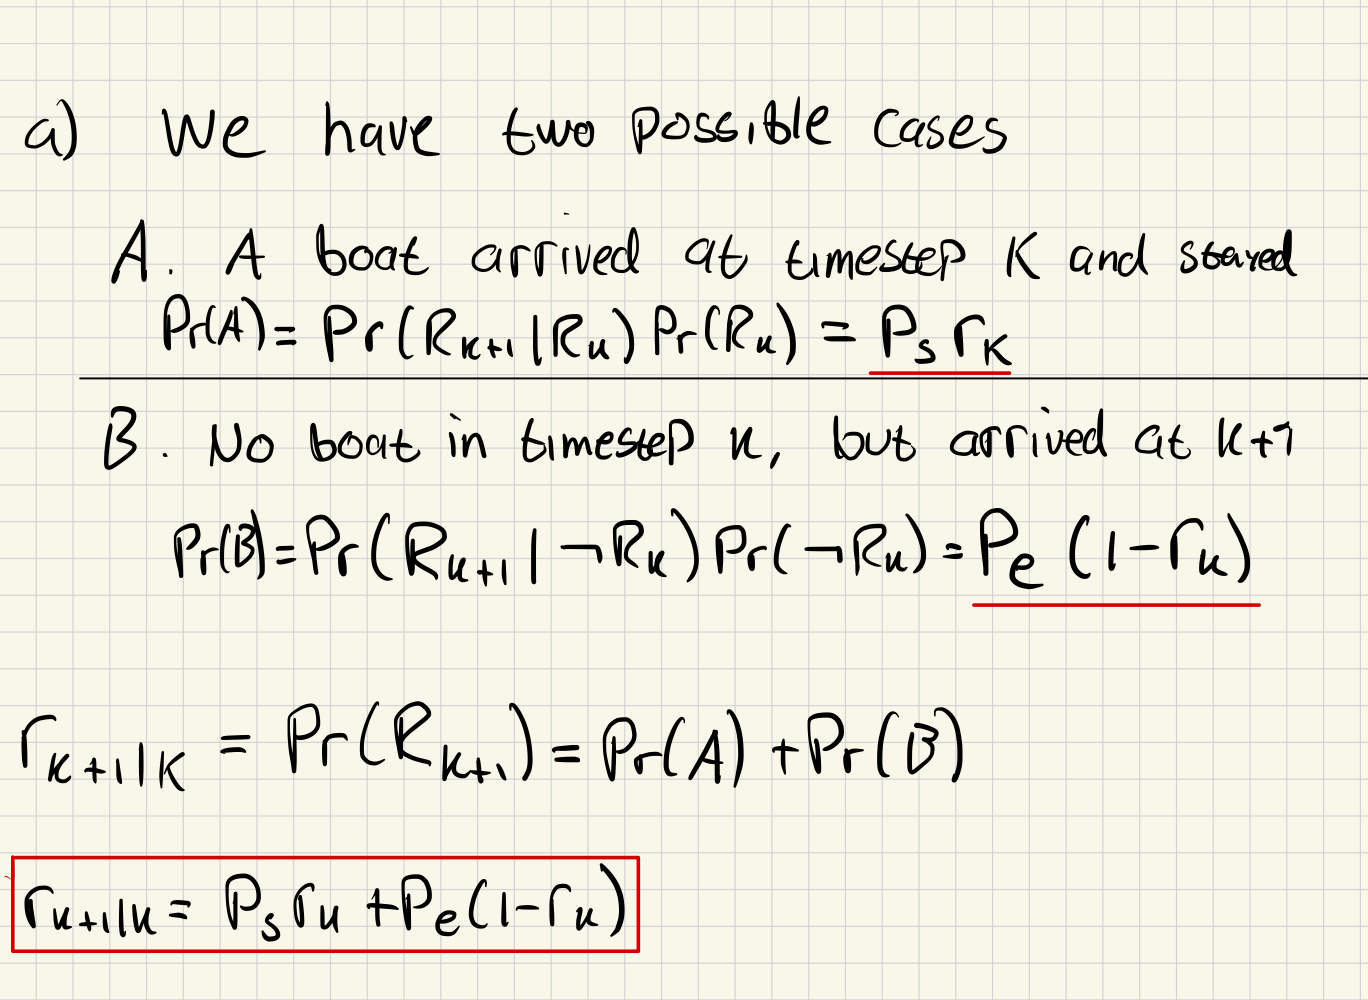 a) We have two possible cases
A. A boat arrived at timestep K and stayed
Pr(A) = Pr(R_{k+1} | R_k) Pr(R_k) = P_s r_k
B. No boat in timestep k, but arrived at k+1
Pr(B) = Pr(R_{k+1} | ¬R_k) Pr(¬R_k) = P_e (1-r_k)
r_{k+1|k} = Pr(R_{k+1}) = Pr(A) + Pr(B)
r_{k+1|k} = P_s r_k + P_e (1-r_k)